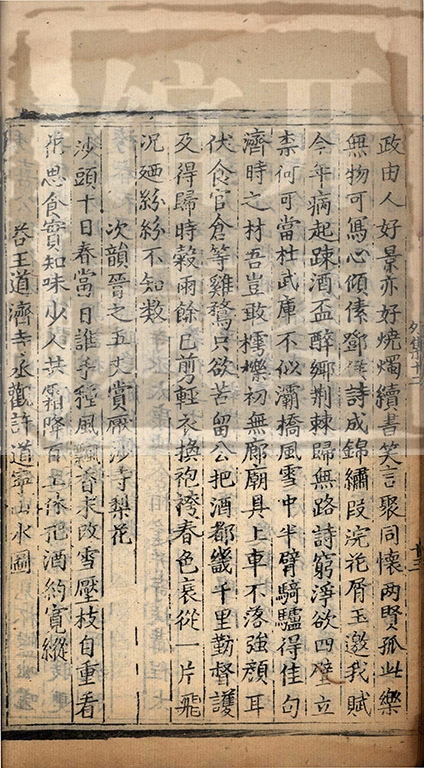 政由人好景亦好燒燭續晝笑言聚同懷兩賢孤此樂
無物可寫心傾倐鄧侯詩成錦繡段浣花屑玉邀我賦
今年病起踈酒盃醉鄉荆棘歸無路詩窮淨欲四壁立
柰何可當杜武庫不似灞橋風雪中半臂騎驢得佳句
濟時之材吾豈敢樗櫟初無廊廟具上車不落強顔耳
伏食官倉等雞鶩只欲苦留公把酒都畿千里勤督護
及得歸時榖雨餘巳剪輕衣換袍袴春色衰從一片飛
況廼紛紛不知數
次韻晉之五丈賞壓沙寺梨花
沙頭十日春當日誰手種風飄香未改雪壓枝自重看
花思食實知味少人共霜降百工休把酒約寛縱
荅王道濟寺丞觀許道寧山水圖
外集十二
十三